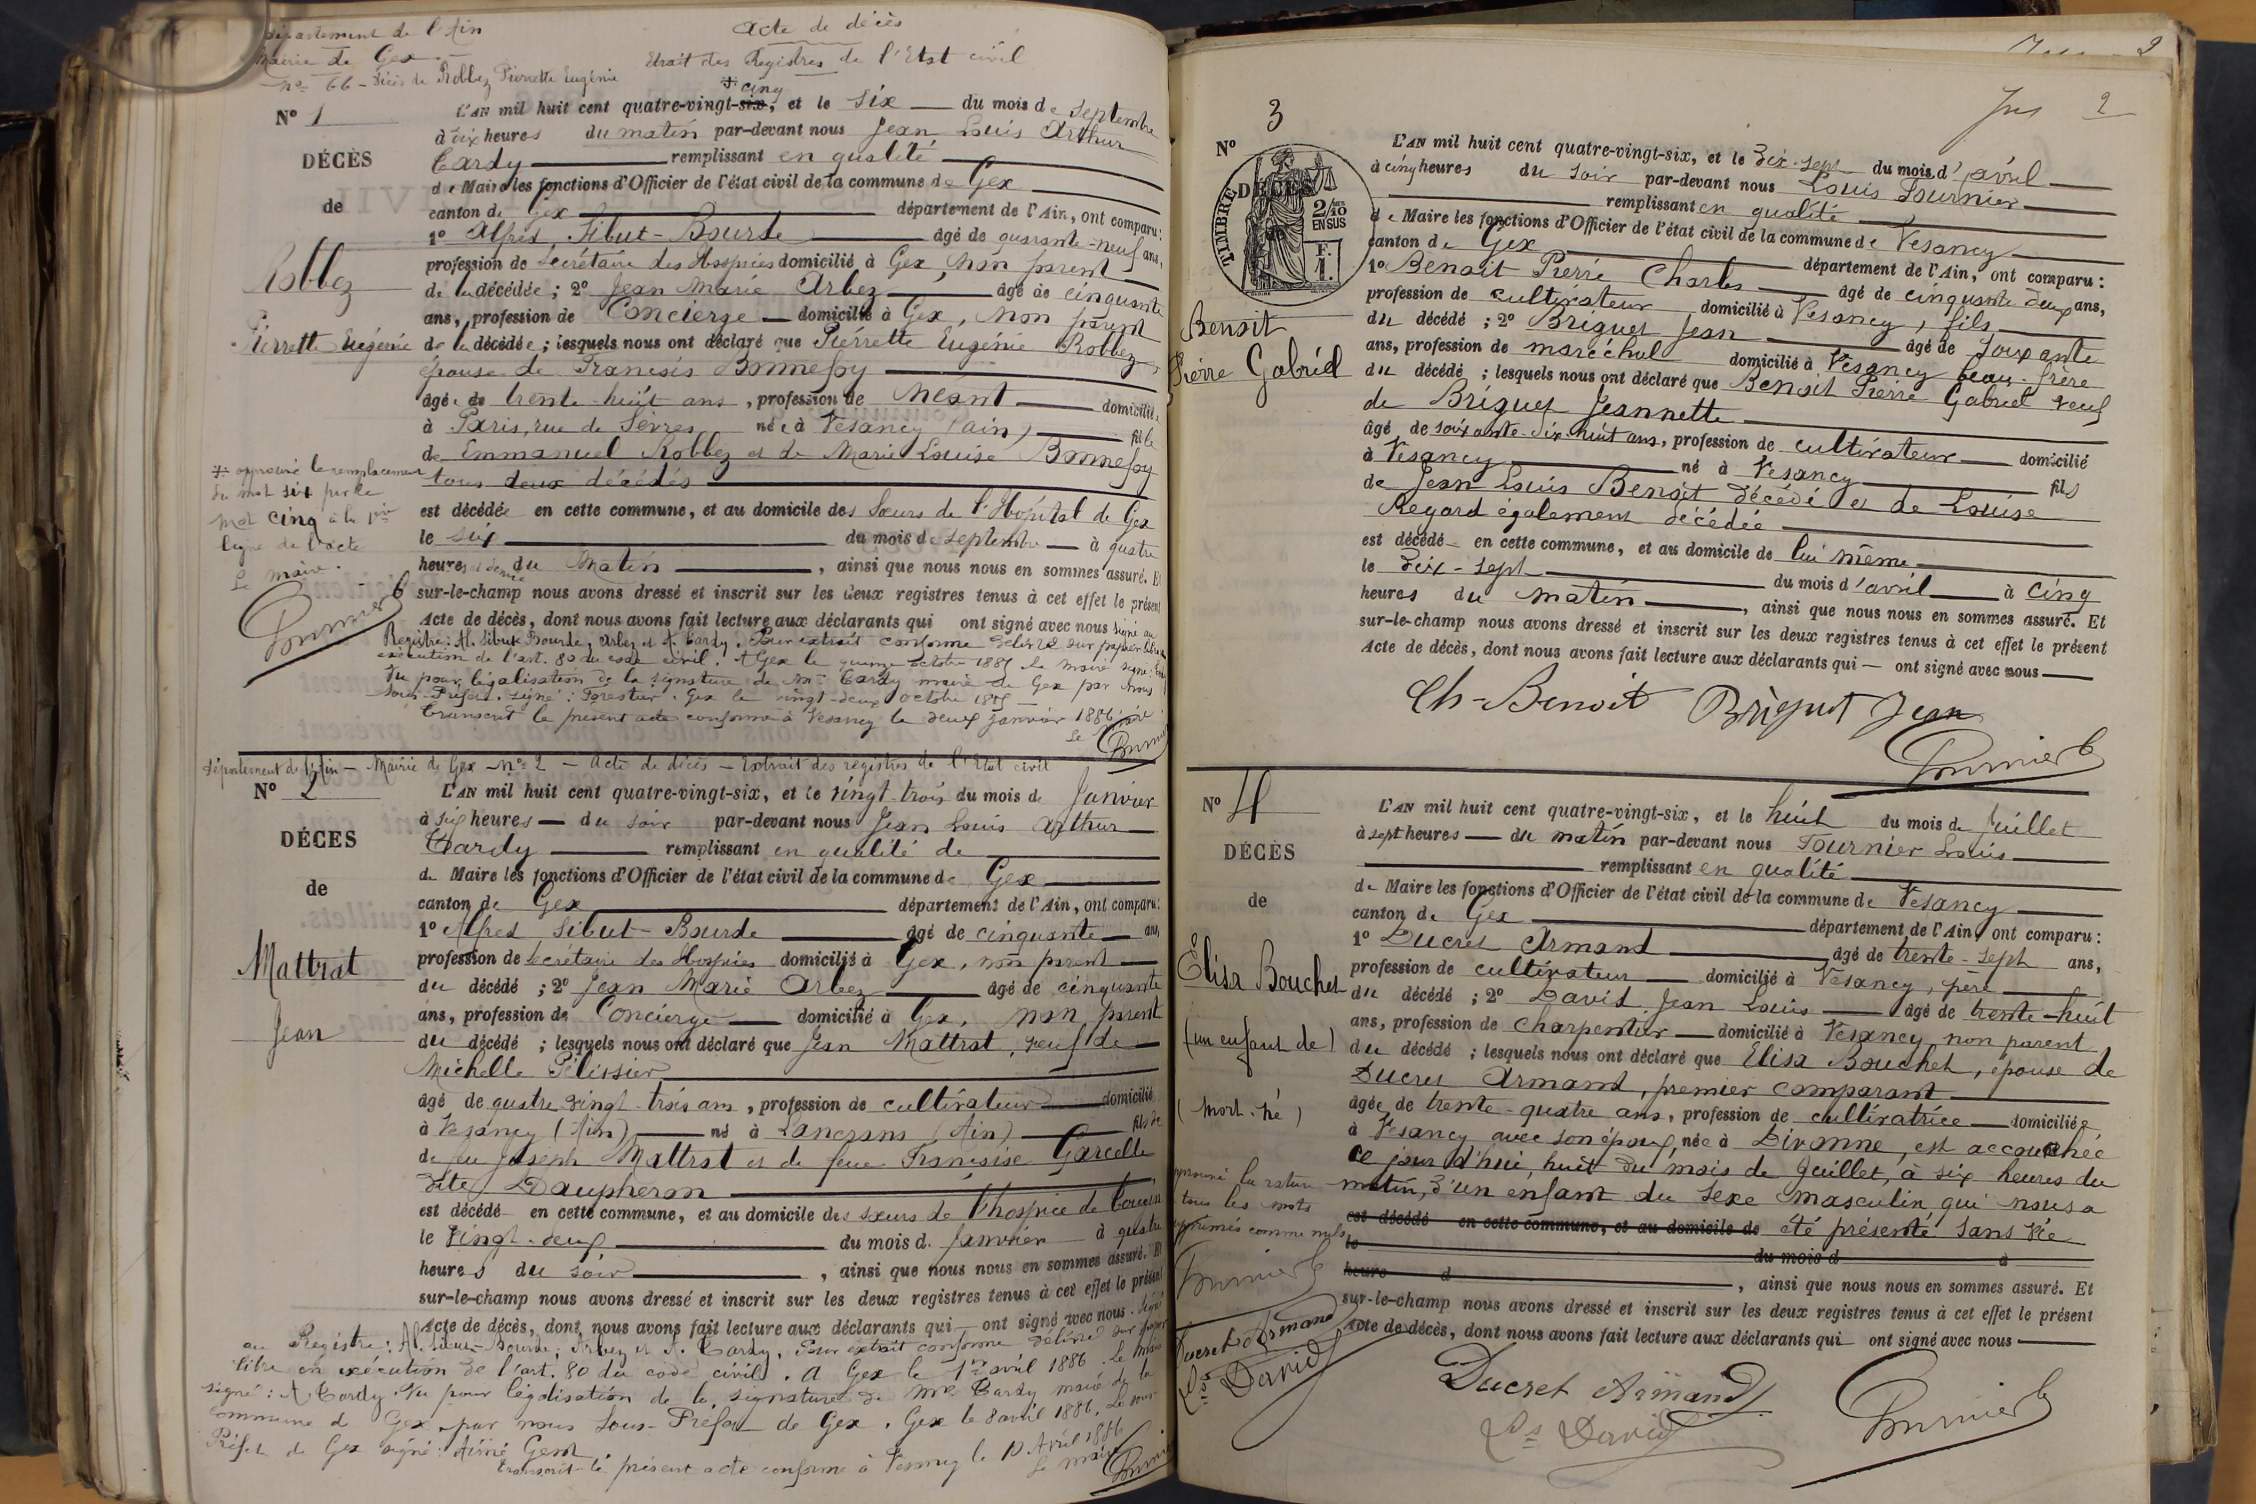 Département de l'Ain
Mairie de Gex
Acte de décès
Extrait des Registres de l'Etat civil
No 66 - Décès de Robbez Pierrette Eugénie
No 1
DÉCÈS
de
Robbez
Pierrette Eugénie
+ cinq
L'AN mil huit cent quatre-vingt-six, et le six du mois de septembre
à dix heures du matin par-devant nous Jean Louis Arthur
Cardy remplissant en qualité
de Maire les fonctions d'Officier de l'état civil de la commune de Gex
canton de Gex département de l'Ain, ont comparu:
1o Alfred Sibut-Bourde âgé de quarante-neuf ans,
profession de Secrétaire des Hospices domicilié à Gex, non parent
de la décédée; 2o Jean Marie Arbez âgé de cinquante
ans, profession de Concierge domicilié à Gex, non parent
de la décédée; lesquels nous ont déclaré que Pierrette Eugénie Robbez,
épouse de Francois Bonnefoy
âgée de trente-huit ans, profession de néant domiciliée
à Paris, rue de Sèvres née à Vesancy (Ain) fille
de Emmanuel Robbez et de Marie Louise Bonnefoy
tous deux décédés
est décédée en cette commune, et au domicile des Sœurs de l'Hôpital de Gex
le six du mois de septembre à quatre
heures et demie du matin, ainsi que nous nous en sommes assuré. Et
sur-le-champ nous avons dressé et inscrit sur les deux registres tenus à cet effet le présent
Acte de décès, dont nous avons fait lecture aux déclarants qui ont signé avec nous signé au
Registre: Al. Sibut-Bourde, Arbez et A. Cardy. Pour extrait conforme délivré sur papier libre en
exécution de l'art. 80 du code civil. A Gex le quinze octobre 1885 le maire signé: Cardy
Vu pour légalisation de la signature de Mr Cardy maire de Gex par nous
Sous-Préfet. signé: Forestier. Gex le vingt-deux octobre 1885
Transcrit le présent acte conforme à Vesancy le deux janvier 1886.
Le Maire
Fournier L
+ approuvé le remplacement
du mot six par le
mot cinq à la 1ère
ligne de l'acte
Le maire.
Fournier L
Département de l'Ain - Mairie de Gex - No 2 - Acte de décès - Extrait des registres de l'Etat civil
No 2
DÉCÈS
de
Mattrat
Jean
L'AN mil huit cent quatre-vingt-six, et le vingt-trois du mois de Janvier
à six heures du soir par-devant nous Jean Louis Arthur
Cardy remplissant en qualité de
de Maire les fonctions d'Officier de l'état civil de la commune de Gex
canton de Gex département de l'Ain, ont comparu:
1o Alfred Sibut-Bourde âgé de cinquante ans,
profession de Secrétaire des Hospices domicilié à Gex, non parent
du décédé; 2o Jean Marie Arbez âgé de cinquante
ans, profession de Concierge domicilié à Gex, non parent
du décédé; lesquels nous ont déclaré que Jean Mattrat, veuf de
Michelle Pélissier
âgé de quatre vingt-trois ans, profession de cultivateur domicilié
à Vesancy (Ain) né à Lancrans (Ain) fils de
de feu Joseph Mattrat et de feue Francoise Garcelle
dite Dauphéron
est décédé en cette commune, et au domicile des sœurs de l'hospice de Tougin
le vingt-deux du mois d. Janvier à quatre
heures du soir, ainsi que nous nous en sommes assuré. Et
sur-le-champ nous avons dressé et inscrit sur les deux registres tenus à cet effet le présent
Acte de décès, dont nous avons fait lecture aux déclarants qui ont signé avec nous. Signé
au Registre: Al. Sibut-Bourde, Arbez et A. Cardy. Pour extrait conforme délivré sur papier
libre en exécution de l'art. 80 du code civil. A Gex le 1er avril 1886. Le Maire
signé: A Cardy. Vu pour légalisation de la signature de Mr Cardy maire de la
commune de Gex par nous Sous-Préfet de Gex. Gex le 8 avril 1886. Le sous-
Préfet de Gex signé: Aimé Gent
transcrit le présent acte conforme à Vesancy le 10 Avril 1886
Le maire
Fournier
2
No 3
DÉCÈS
TIMBRE
2/10
EN SUS
F.
1.
Benoit
Pierre Gabriel
L'AN mil huit cent quatre-vingt-six, et le dix-sept du mois d'avril
à cinq heures du soir par-devant nous Louis Fournier
remplissant en qualité
de Maire les fonctions d'Officier de l'état civil de la commune de Vesancy
canton de Gex département de l'Ain, ont comparu:
1o Benoit Pierre Charles âgé de cinquante deux ans,
profession de cultivateur domicilié à Vesancy, fils
du décédé; 2o Briquet Jean âgé de soixante
ans, profession de maréchal domicilié à Vesancy beau-frère
du décédé; lesquels nous ont déclaré que Benoit Pierre Gabriel veuf
de Briquet Jeannette
âgé de soixante-dix-huit ans, profession de cultivateur domicilié
à Vesancy né à Vesancy fils
de Jean Louis Benoit décédé et de Louise
Regard également décédée
est décédé en cette commune, et au domicile de lui même
le dix-sept du mois d'avril à cinq
heures du matin, ainsi que nous nous en sommes assuré. Et
sur-le-champ nous avons dressé et inscrit sur les deux registres tenus à cet effet le présent
Acte de décès, dont nous avons fait lecture aux déclarants qui ont signé avec nous
Ch-Benoit Briquet Jean
Fournier L
No 4
DÉCÈS
de
Élisa Bouchet
(un enfant de)
(mort-né)
L'AN mil huit cent quatre-vingt-six, et le huit du mois de Juillet
à sept heures du matin par-devant nous Fournier Louis
remplissant en qualité
de Maire les fonctions d'Officier de l'état civil de la commune de Vesancy
canton de Gex département de l'Ain, ont comparu:
1o Ducret Armand âgé de trente-sept ans,
profession de cultivateur domicilié à Vesancy, père
du décédé; 2o David Jean Louis âgé de trente-huit
ans, profession de charpentier domicilié à Vesancy non parent
du décédé; lesquels nous ont déclaré que Elisa Bouchet, épouse de
Ducret Armand, premier comparant
âgée de trente-quatre ans, profession de cultivatrice domiciliée
à Vesancy avec son époux, née à Divonne, est accouchée
ce jour d'hui, huit du mois de Juillet, à six heures du
matin, d'un enfant du sexe masculin, qui nous a
est décédé en cette commune, et au domicile de été présenté sans vie
le du mois d à
heure d, ainsi que nous nous en sommes assuré. Et
sur-le-champ nous avons dressé et inscrit sur les deux registres tenus à cet effet le présent
Acte de décès, dont nous avons fait lecture aux déclarants qui ont signé avec nous
approuvé la rature
tous les mots
supprimés comme nuls
Fournier L
Ducret Armand
Ls David
Ducret Armand
Ls David
Fournier L